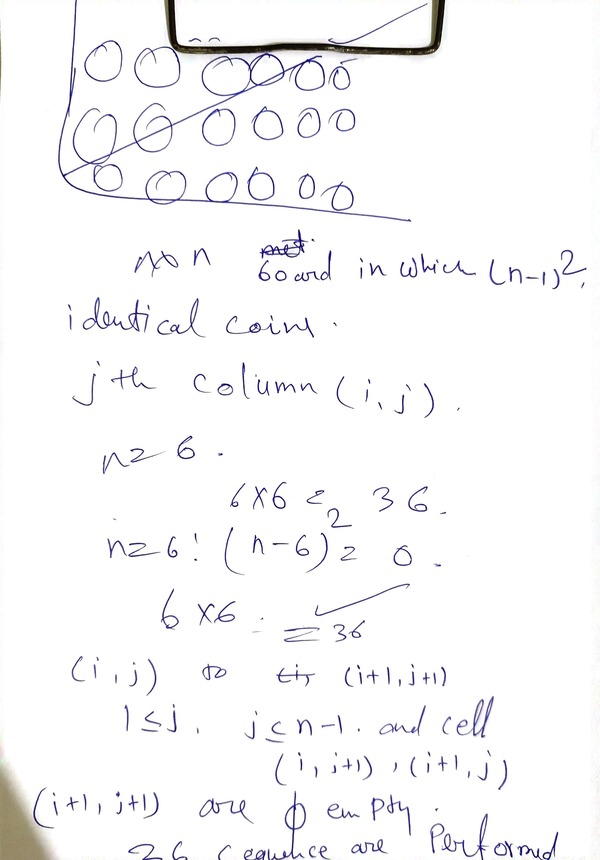 n x n board in which (n-1)²,
identical coins.
jth column (i,j).
n = 6.
6x6 = 36.
n=6! (n-6)² = 0.
6x6. = 36
(i,j) to (i+1,j+1)
1≤j, j≤n-1. and cell
(i,j+1), (i+1,j)
(i+1,j+1) are ϕ empty.
36 sequence are Performed